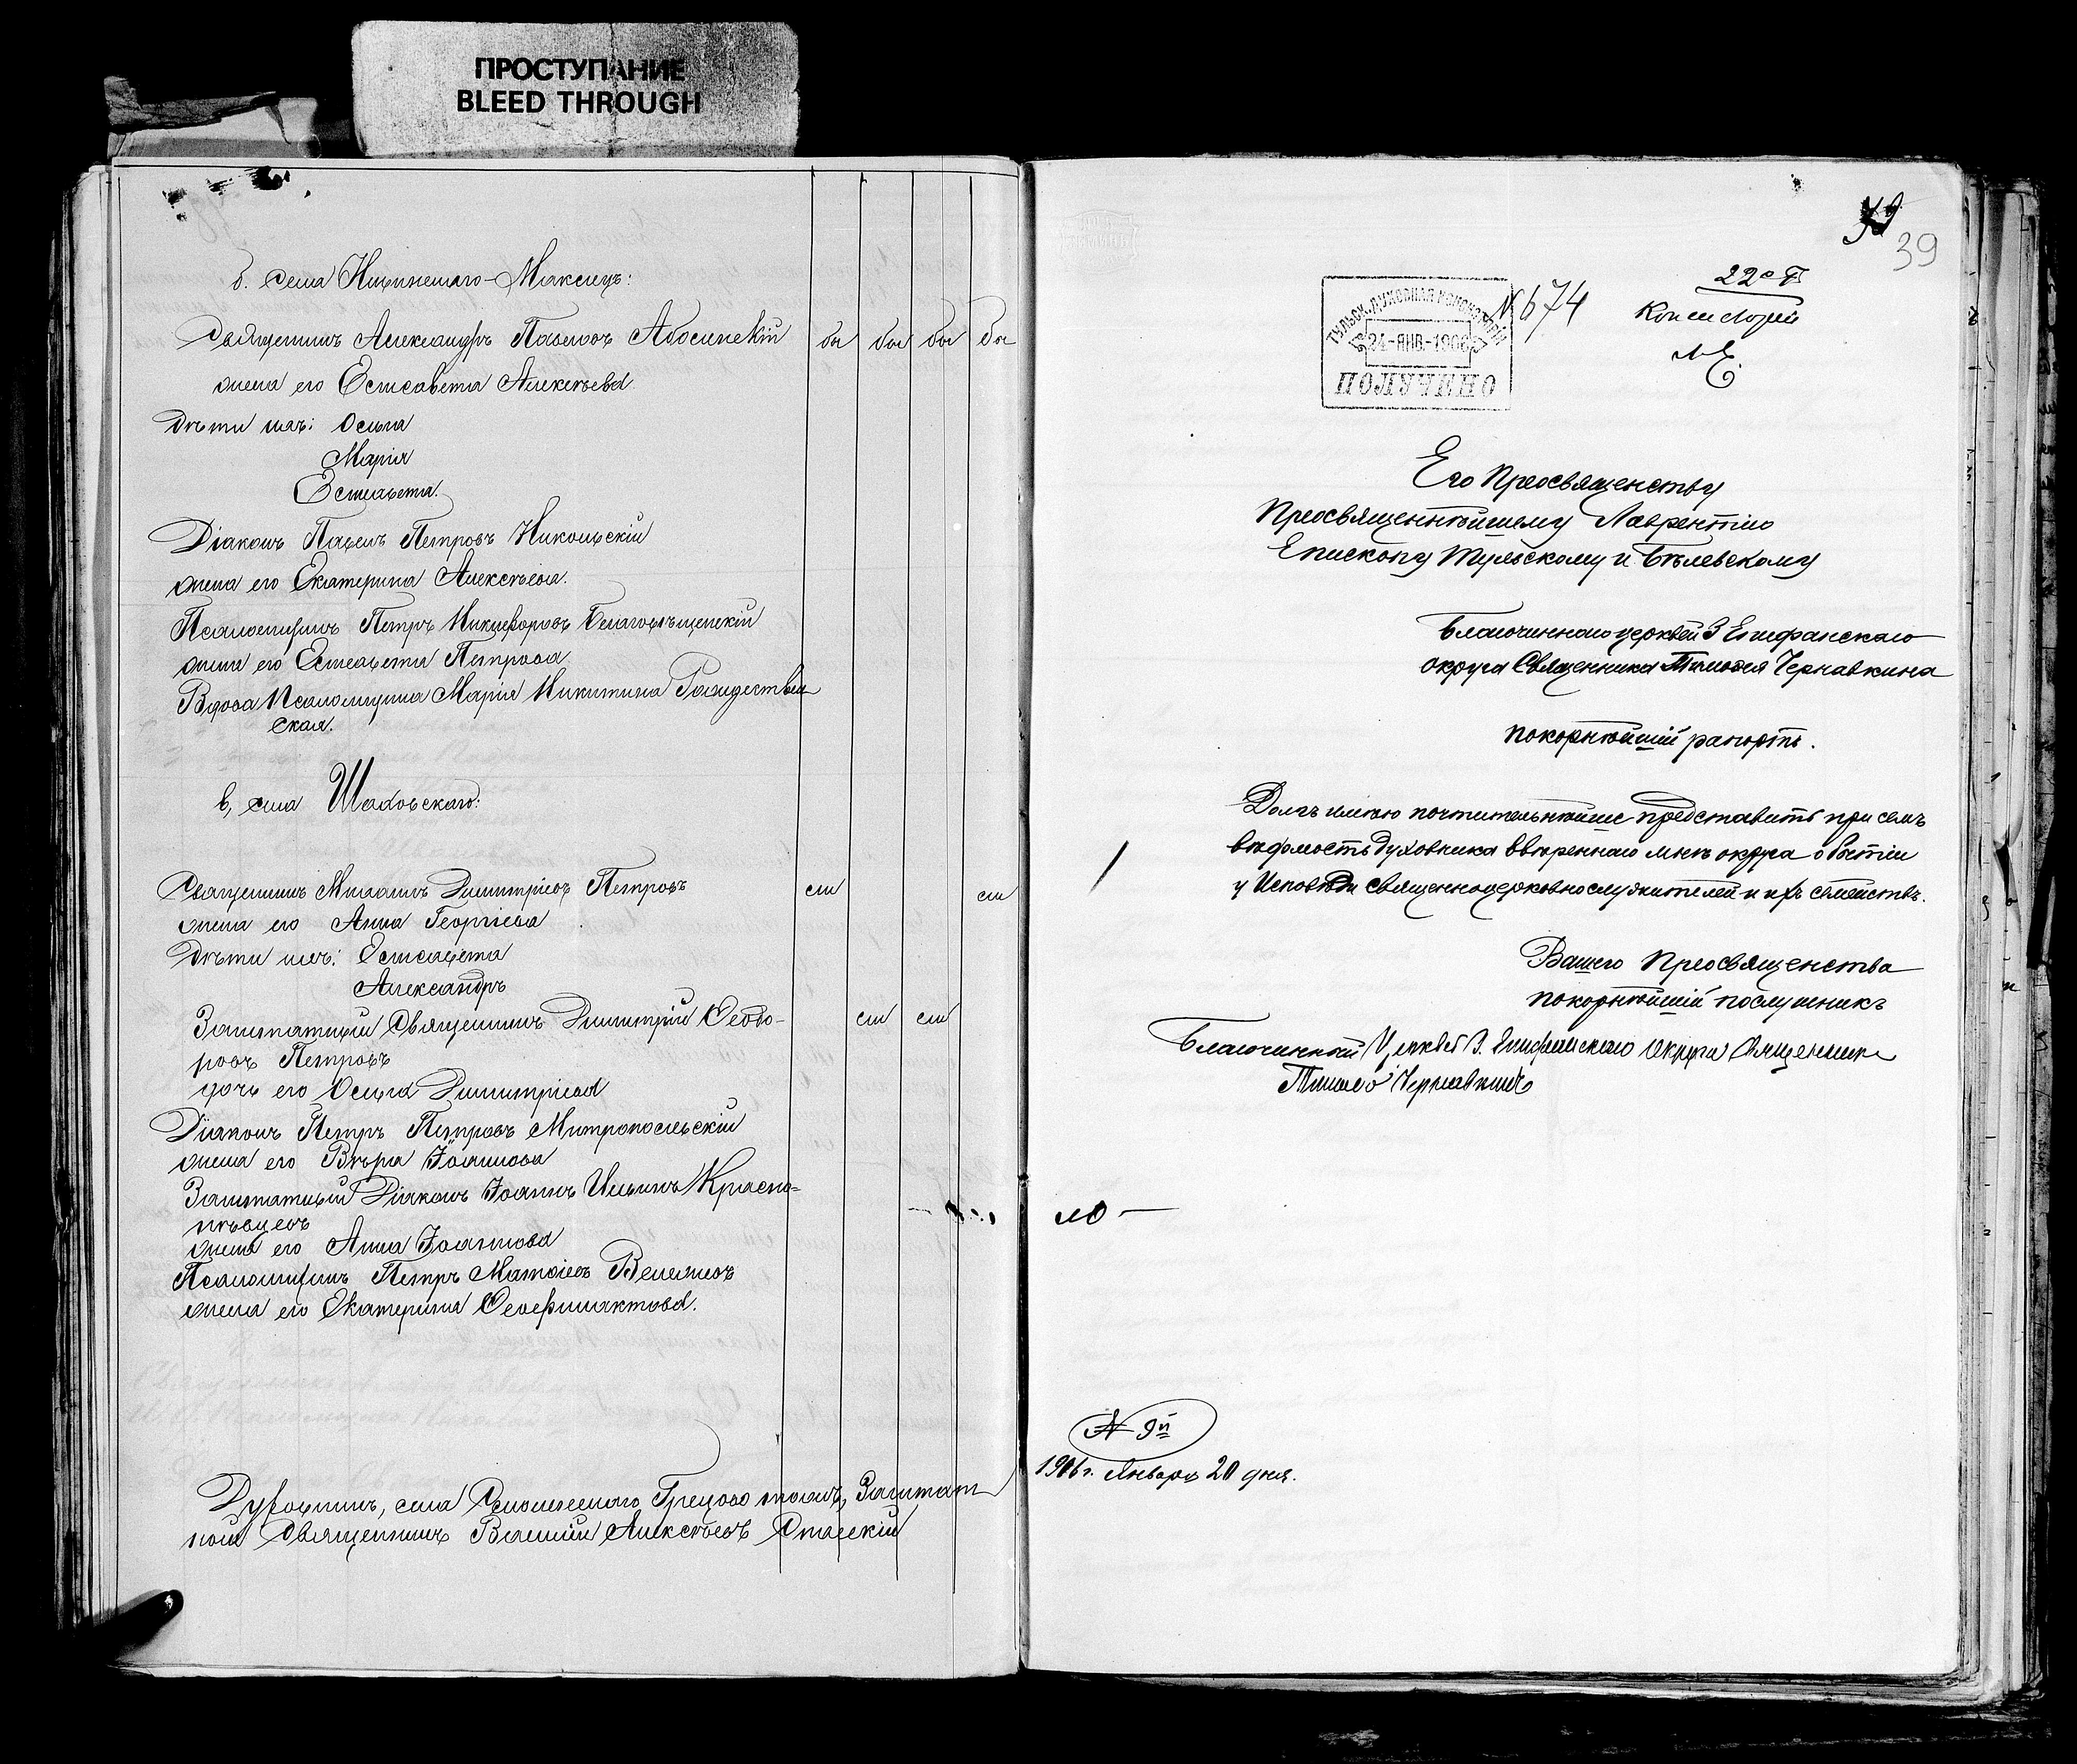 ПРОСТУПАНИЕ
BLEED THROUGH
б. села
Священникъ Александръ Павловъ
бы бы бы бы
жена его Елисавета Алексѣева
Дѣти ихъ: Ольга
Марія
Елисавета.
Діаконъ Павелъ Петровъ Никольскій
жена его Екатерина Алексѣева.
Псаломщикъ Петръ Никифоровъ Благовѣщенскій
жена его Елисавета Петрова
Вдова псаломщика Марія Никитина Рождествен
ская.
в, села Шаховскаго:
Священникъ Михаилъ Димитріевъ Петровъ
жена его Анна Георгіева
Дѣти ихъ: Елисавета
Александръ
Заштатный Священникъ Димитрій Ѳеодо-
ровъ Петровъ
дочь его Ольга Димитріева
Діаконъ Петръ Петровъ Митропольскій
жена его Вѣра Іоаннова
Заштатный Діаконъ Іоаннъ Ильинъ Красно-
пѣвцевъ
жена его Анна Іоаннова
Псаломщикъ Петръ Матѳіевъ
жена его Екатерина
Духовникъ, села Заштат
ный Священникъ Василій Алексѣевъ
39
ТУЛЬСК. ДУХОВНАЯ КОНСИСТОРІЯ
24-ЯНВ.-1906
ПОЛУЧЕНО
№ 674
Консисторія
Его Преосвященству
Преосвященнѣйшему Лаврентію
Епископу Тульскому и Бѣлевскому
Благочиннаго церквей 3 Епифанскаго
округа Священника Тимоѳея Чернавкина
покорнѣйшій рапортъ.
Долгъ имѣю почтительнѣйше представить при семъ
вѣдомость духовника ввѣреннаго мнѣ округа о бытіи
у Исповѣди священноцерковнослужителей и ихъ семействъ.
Вашего Преосвященства
покорнѣйшій послушникъ
Благочинный Церквей 3. Епифанскаго Округа Священникъ
Тимоѳей Чернавкинъ
№ 9й
1906 г. Января 20 дня.